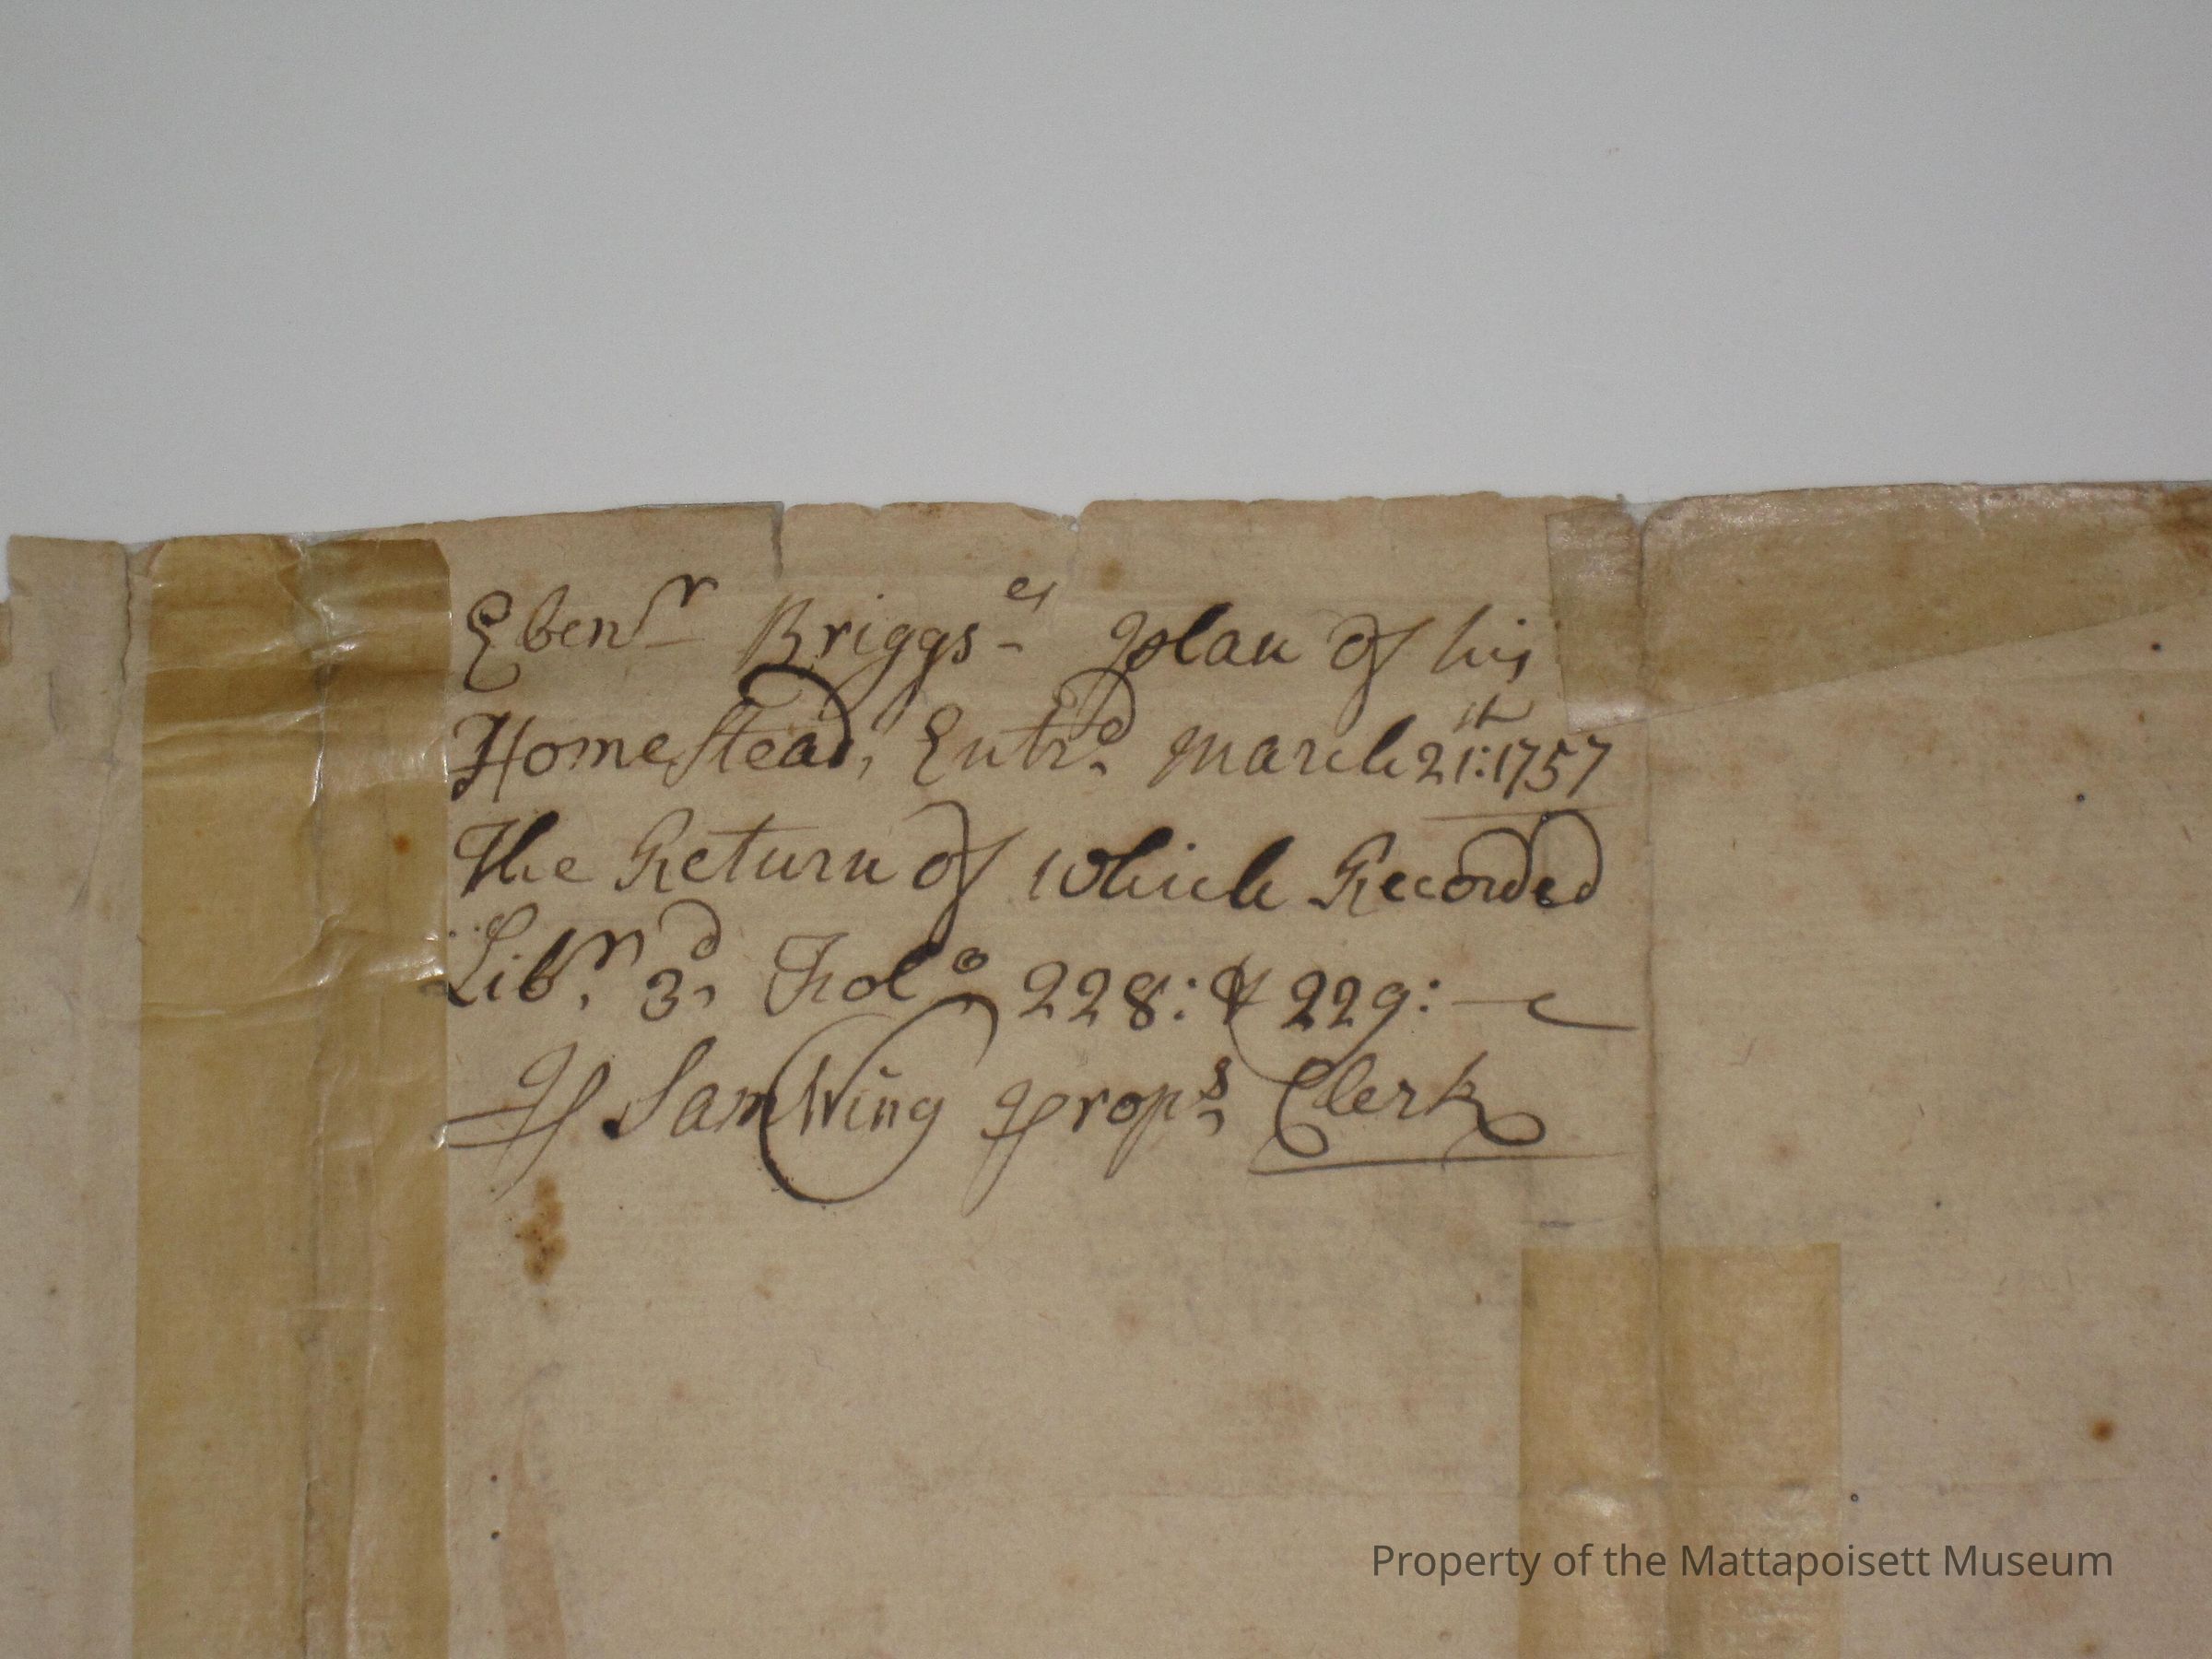 Ebenr Briggses Plan of his
Homestead, Entrd March 21th: 1757
The Return of Which Recorded
Libr. 3d, Folo. 228: & 229:
Pr Sam Wing Props Clerk
Property of the Mattapoisett Museum